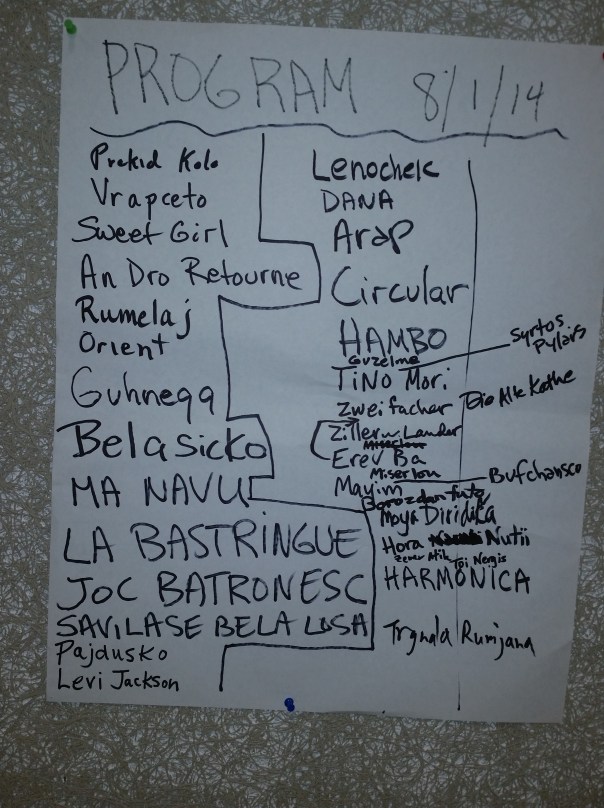 PROGRAM 8/1/14
Prekid Kolo
Vrapceto
Sweet Girl
An Dro Retourne
Rumelaj
Orient
Guhnegg
Belasicko
MA NAVU
LA BASTRINGUE
JOC BATRONESC
SAVILASE BELA LOSA
Pajdusko
Levi Jackson
Lenochek
DANA
Arap
Circular
HAMBO
Guzelme
TiNO Mori
Syrtos Pylaris
Zweifacher
Die Alte Kathe
Ziller Lander
Miserlou
Erev Ba
Miserlou
Mayim
Bufchansco
Borozdanfută
Moya Diridika
Hora Nutii
Zemer Atik Toi Nergis
HARMONICA
Trgnala Rumjana